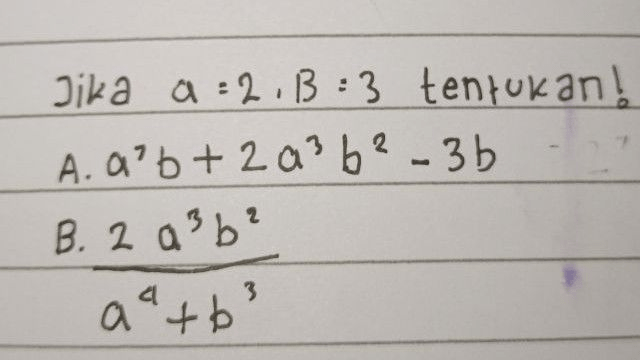 Jika a = 2, B = 3 tentukan!
A. a⁷b + 2a³b² - 3b
B. 2 a³b²
a⁴ + b³